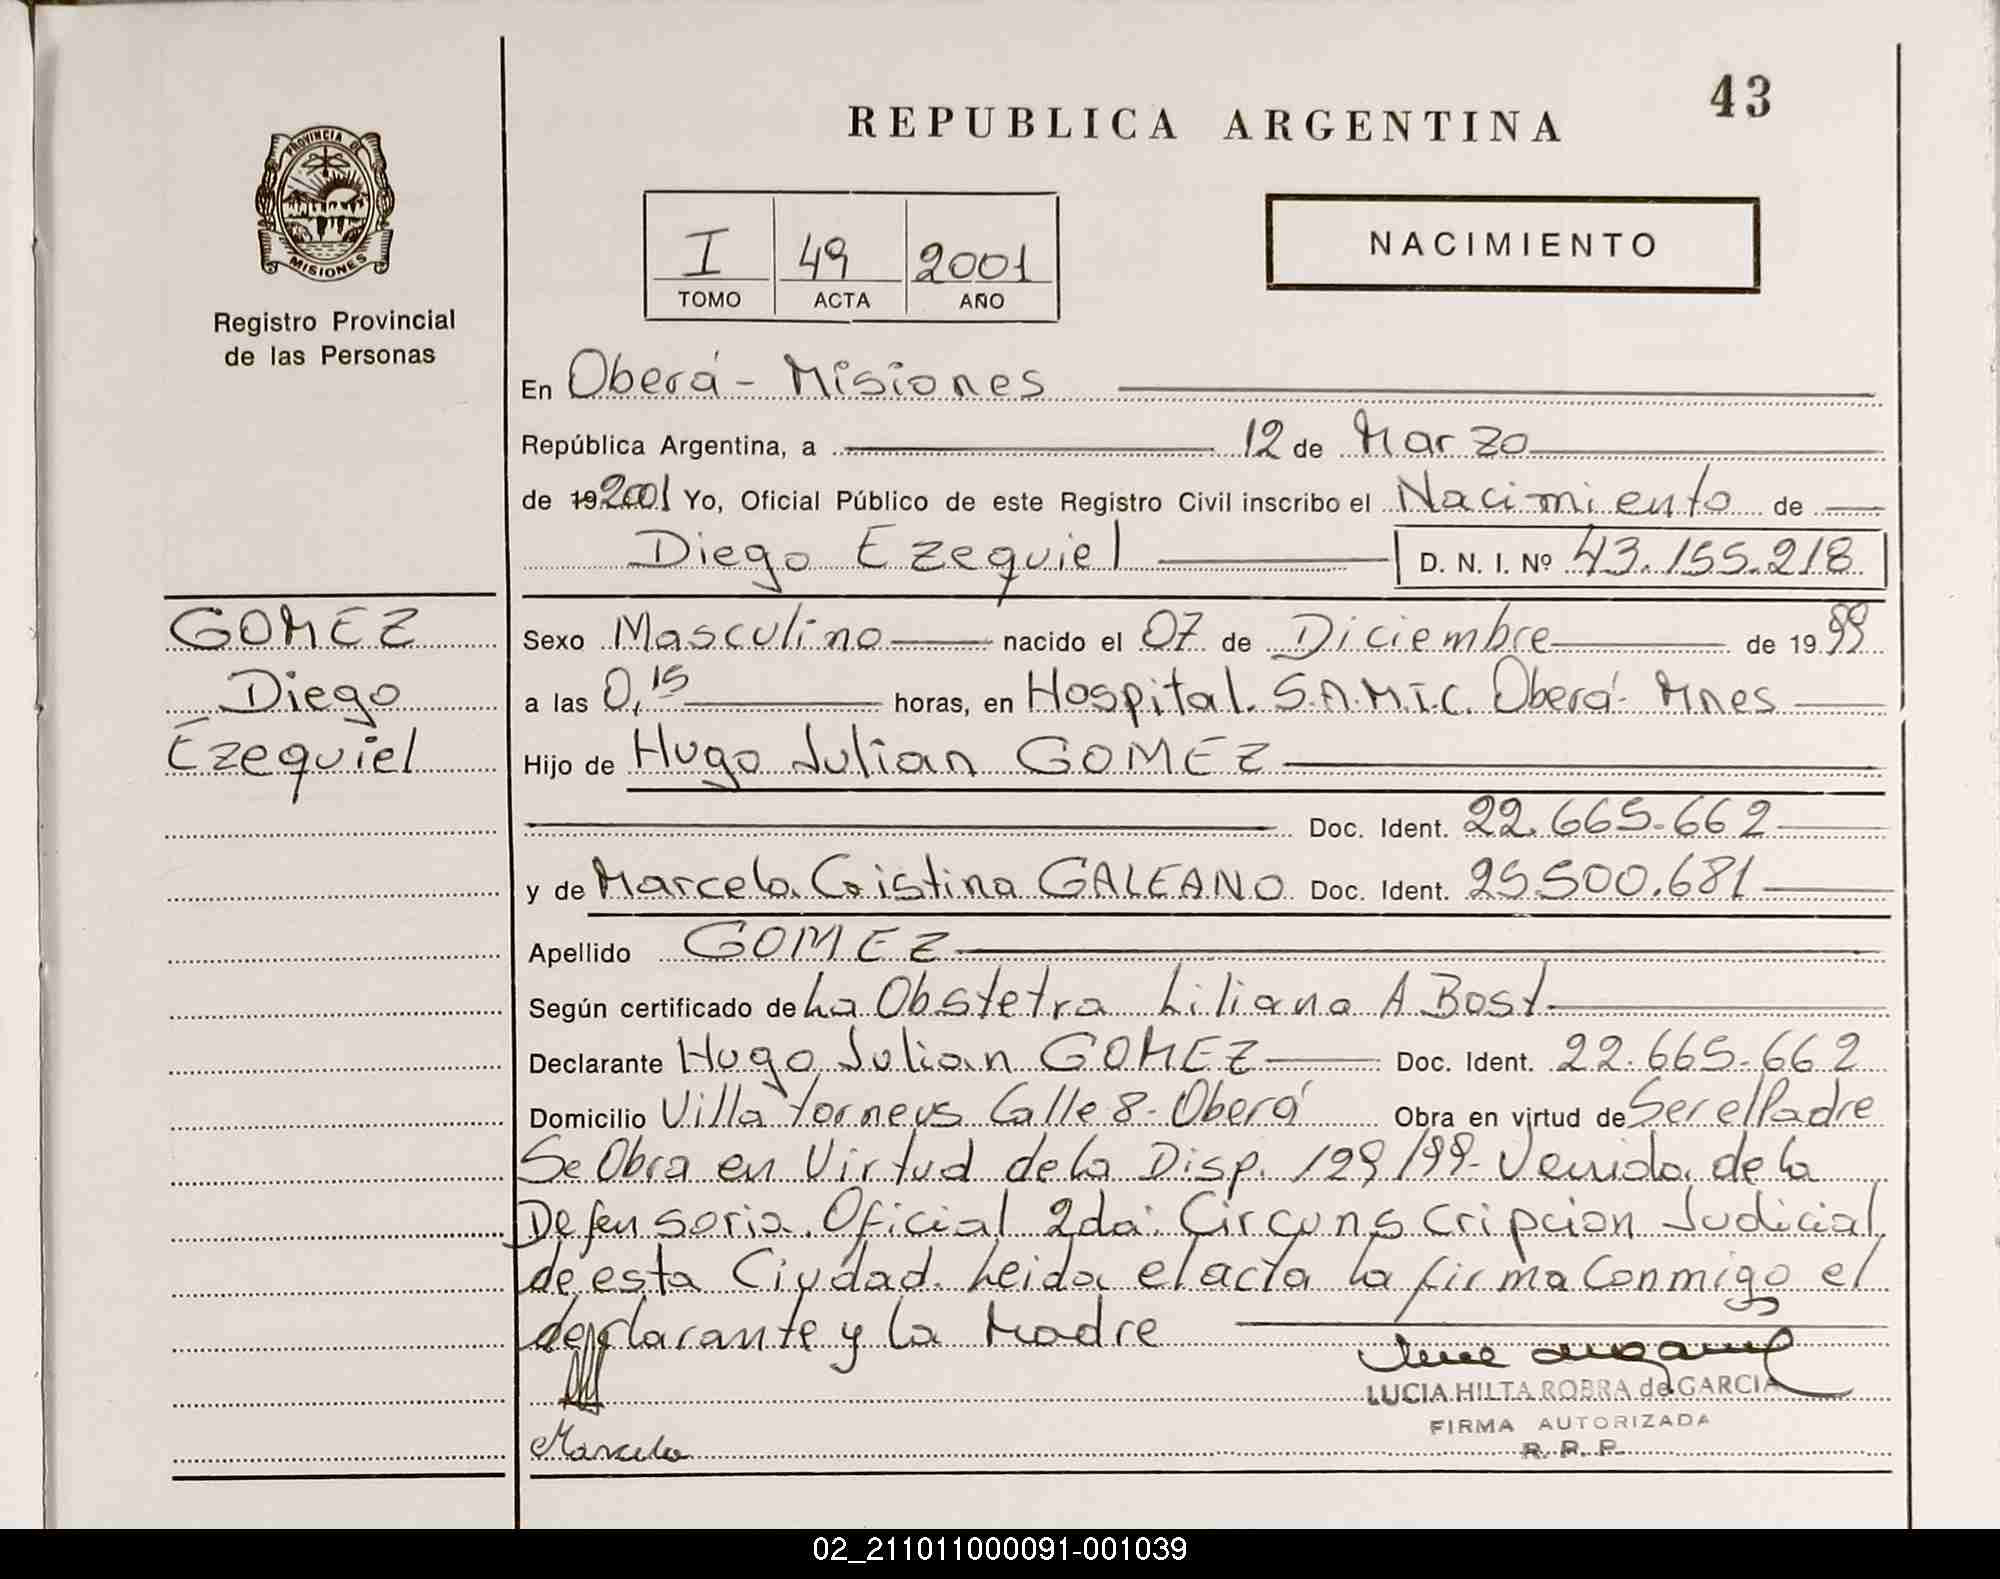 REPUBLICA ARGENTINA
43
PROVINCIA DE
MISIONES
Registro Provincial
de las Personas
I 49 2001
TOMO ACTA AÑO
NACIMIENTO
En Oberá - Misiones
República Argentina, a 12 de Marzo
de 19 2001 Yo, Oficial Público de este Registro Civil inscribo el Nacimiento de
Diego Ezequiel D. N. I. Nº 43.155.218
GOMEZ
Diego
Ezequiel
Sexo Masculino nacido el 07 de Diciembre de 1999
a las 0,15 horas, en Hospital. S.A.M.I.C. Oberá- Mnes
Hijo de Hugo Julian GOMEZ
Doc. Ident. 22.665.662
y de Marcela Cristina GALEANO Doc. Ident. 25.500.681
Apellido GOMEZ
Según certificado de La Obstetra Liliana A Bost
Declarante Hugo Julian GOMEZ Doc. Ident. 22.665.662
Domicilio Villa Torneus Calle 8- Oberá Obra en virtud de Ser el Padre
Se Obra en Virtud de la Disp. 129/99- Venida de la
Defensoria Oficial 2da: Circunscripcion Judicial
de esta Ciudad. Leida el acta la firma Conmigo el
declarante y la Madre
LUCIA HILTA ROBRA de GARCIA
FIRMA AUTORIZADA
R. P. P.
Marcela
02_211011000091-001039